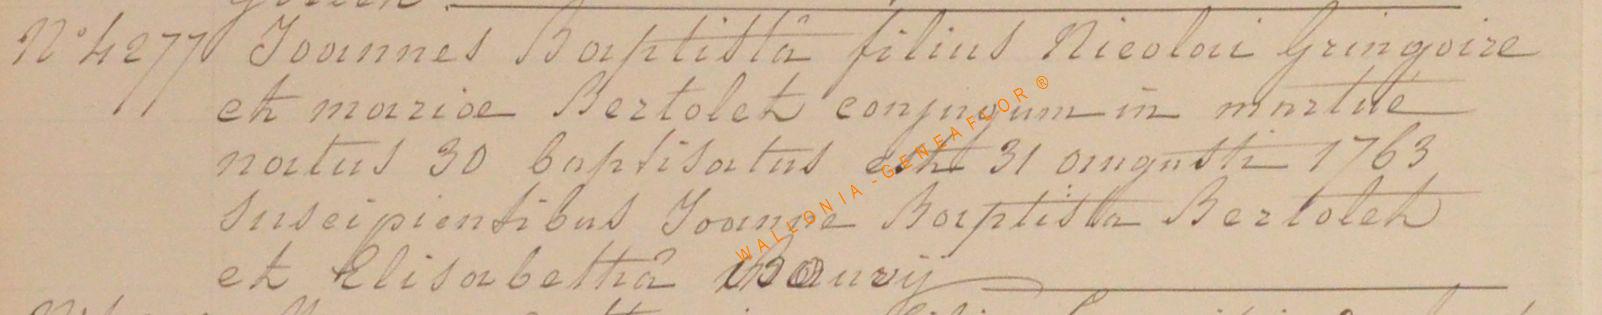 N° 4277 Joannes Baptistâ filius Nicolai Gringoire
et mariae Bertolet conjugum in martue
natus 30 baptisatus est 31 augusti 1763
suscipientibus Joanne Baptista Bertolet
et Elisabethâ Bauvij
WALLONIA-GENEAFLOOR®